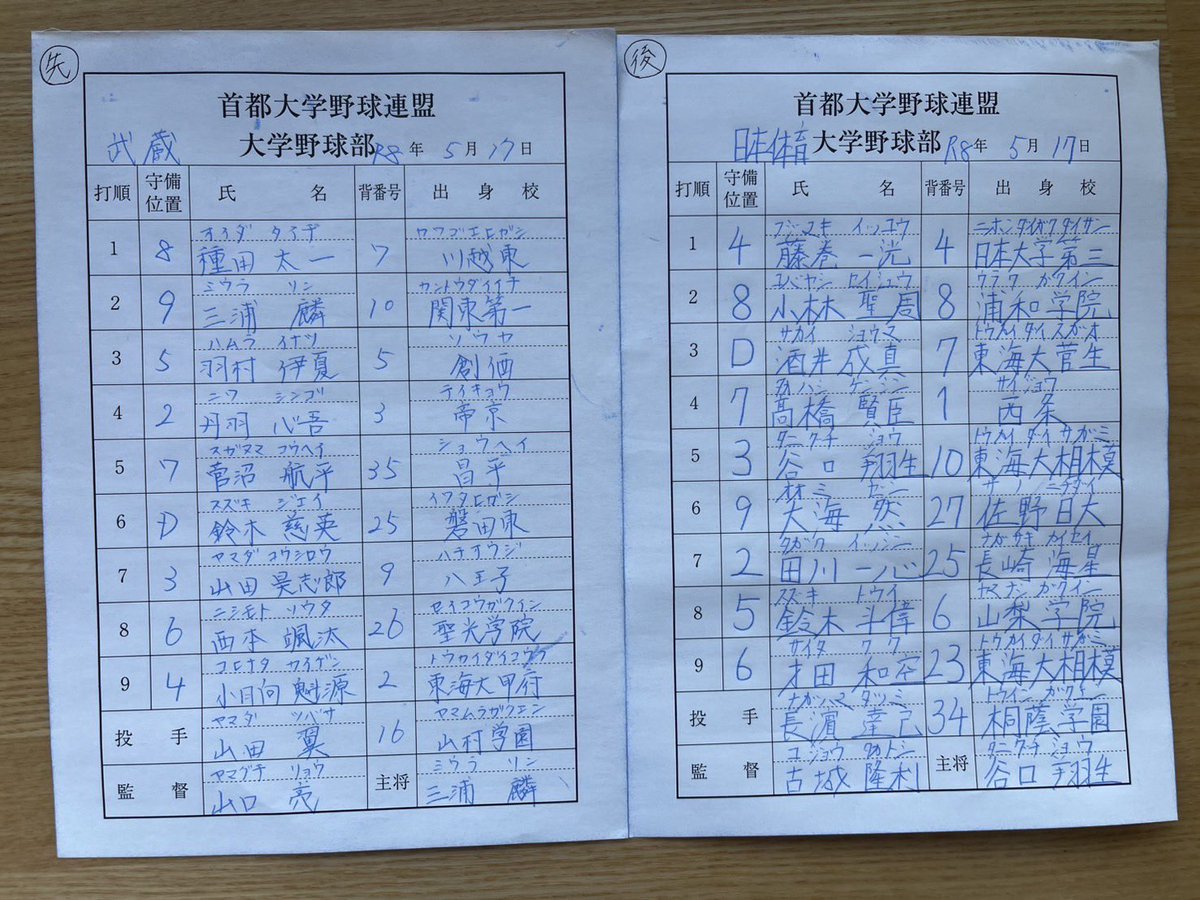 先
首都大学野球連盟
武蔵 大学野球部 R8年 5月17日
打順 守備位置 氏名 背番号 出身校
オイダ タイチ カワゴエヒガシ
1 8 種田 太一 7 川越東
ミウラ リン カントウダイイチ
2 9 三浦 麟 10 関東第一
ハムラ イナツ ソウカ
3 5 羽村 伊夏 5 創価
ニワ シンゴ テイキョウ
4 2 丹羽 心吾 3 帝京
スガヌマ コウヘイ ショウヘイ
5 7 菅沼 航平 35 昌平
スズキ ジェイ イワタヒガシ
6 D 鈴木 慈英 25 磐田東
ヤマダ コウシロウ ハチオウジ
7 3 山田 昊志郎 9 八王子
ニシモト ソウタ セイコウガクイン
8 6 西本 颯汰 26 聖光学院
コヒナタ カイゲン トウカイダイコウフ
9 4 小日向 魁源 2 東海大甲府
ヤマダ ツバサ ヤマムラガクエン
投手 山田 翼 16 山村学園
ヤマグチ リョウ ミウラ リン
監督 山口 亮 主将 三浦 麟
後
首都大学野球連盟
日本体育 大学野球部 R8年 5月17日
打順 守備位置 氏名 背番号 出身校
フジマキ イッコウ ニホンダイガクダイサン
1 4 藤巻 一洸 4 日本大学第三
コバヤシ セイシュウ ウラワ ガクイン
2 8 小林 聖周 8 浦和学院
サカイ ショウマ トウカイダイスガオ
3 D 酒井 成真 7 東海大菅生
タカハシ ケンシン サイジョウ
4 7 髙橋 賢臣 1 西条
タニグチ ショウ トウカイ ダイ サガミ
5 3 谷口 翔生 10 東海大相模
オオミ ゼン サノ ニチダイ
6 9 大海 然 27 佐野日大
タガワ イッシン ナガサキ カイセイ
7 2 田川 一心 25 長崎 海星
スズキ トウイ ヤマナシ ガクイン
8 5 鈴木 斗偉 6 山梨学院
サイタ ワク トウカイダイサガミ
9 6 才田 和空 23 東海大相模
ナガハマ タツミ トウイン ガクエン
投手 長濵 達己 34 桐蔭学園
コジョウ タカトシ タニグチ ショウ
監督 古城 隆利 主将 谷口 翔生